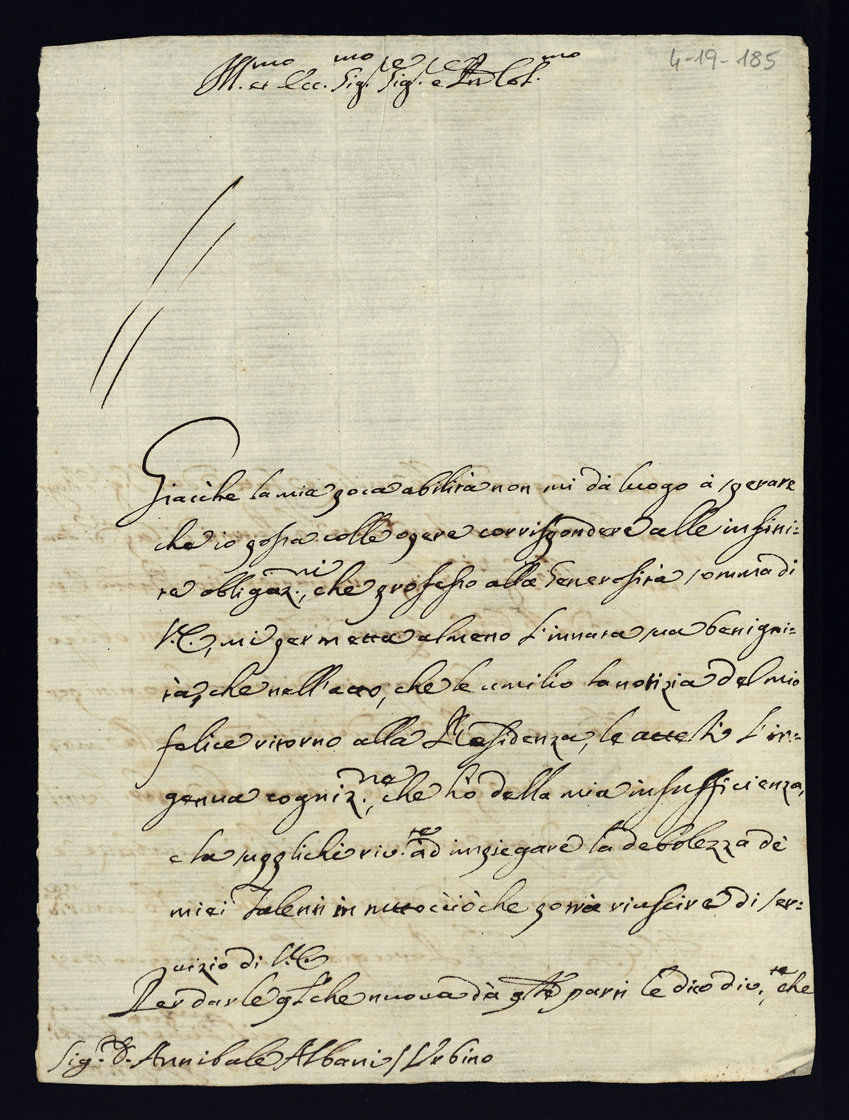 Ill.mo et Ecc.mo Sig.re Sig.re e P.rōn Col.mo
4-19-185
Giacche la mia poca abilità non mi dà luogo à sperare
che io possa colle opere corrispondere alle infini=
te obligaz.ni, che professo alla Generosità somma di
V.E., mi permetta almeno l'innata sua benigni=
tà, che nell'atto, che le umilio la notizia del mio
felice ritorno alla Residenza, le attesti l'in=
genua cogniz.ne, che hò della mia insufficienza,
e la supplichi riv.te ad impiegare la debolezza de
miei Talenti in tutto ciò che potrà riuscire di ser=
vizio di V.E.
Per darle q̃lche nuova dà q̃ste parti le dico div.te, che
Sig.r D. Annibale Albani / Urbino